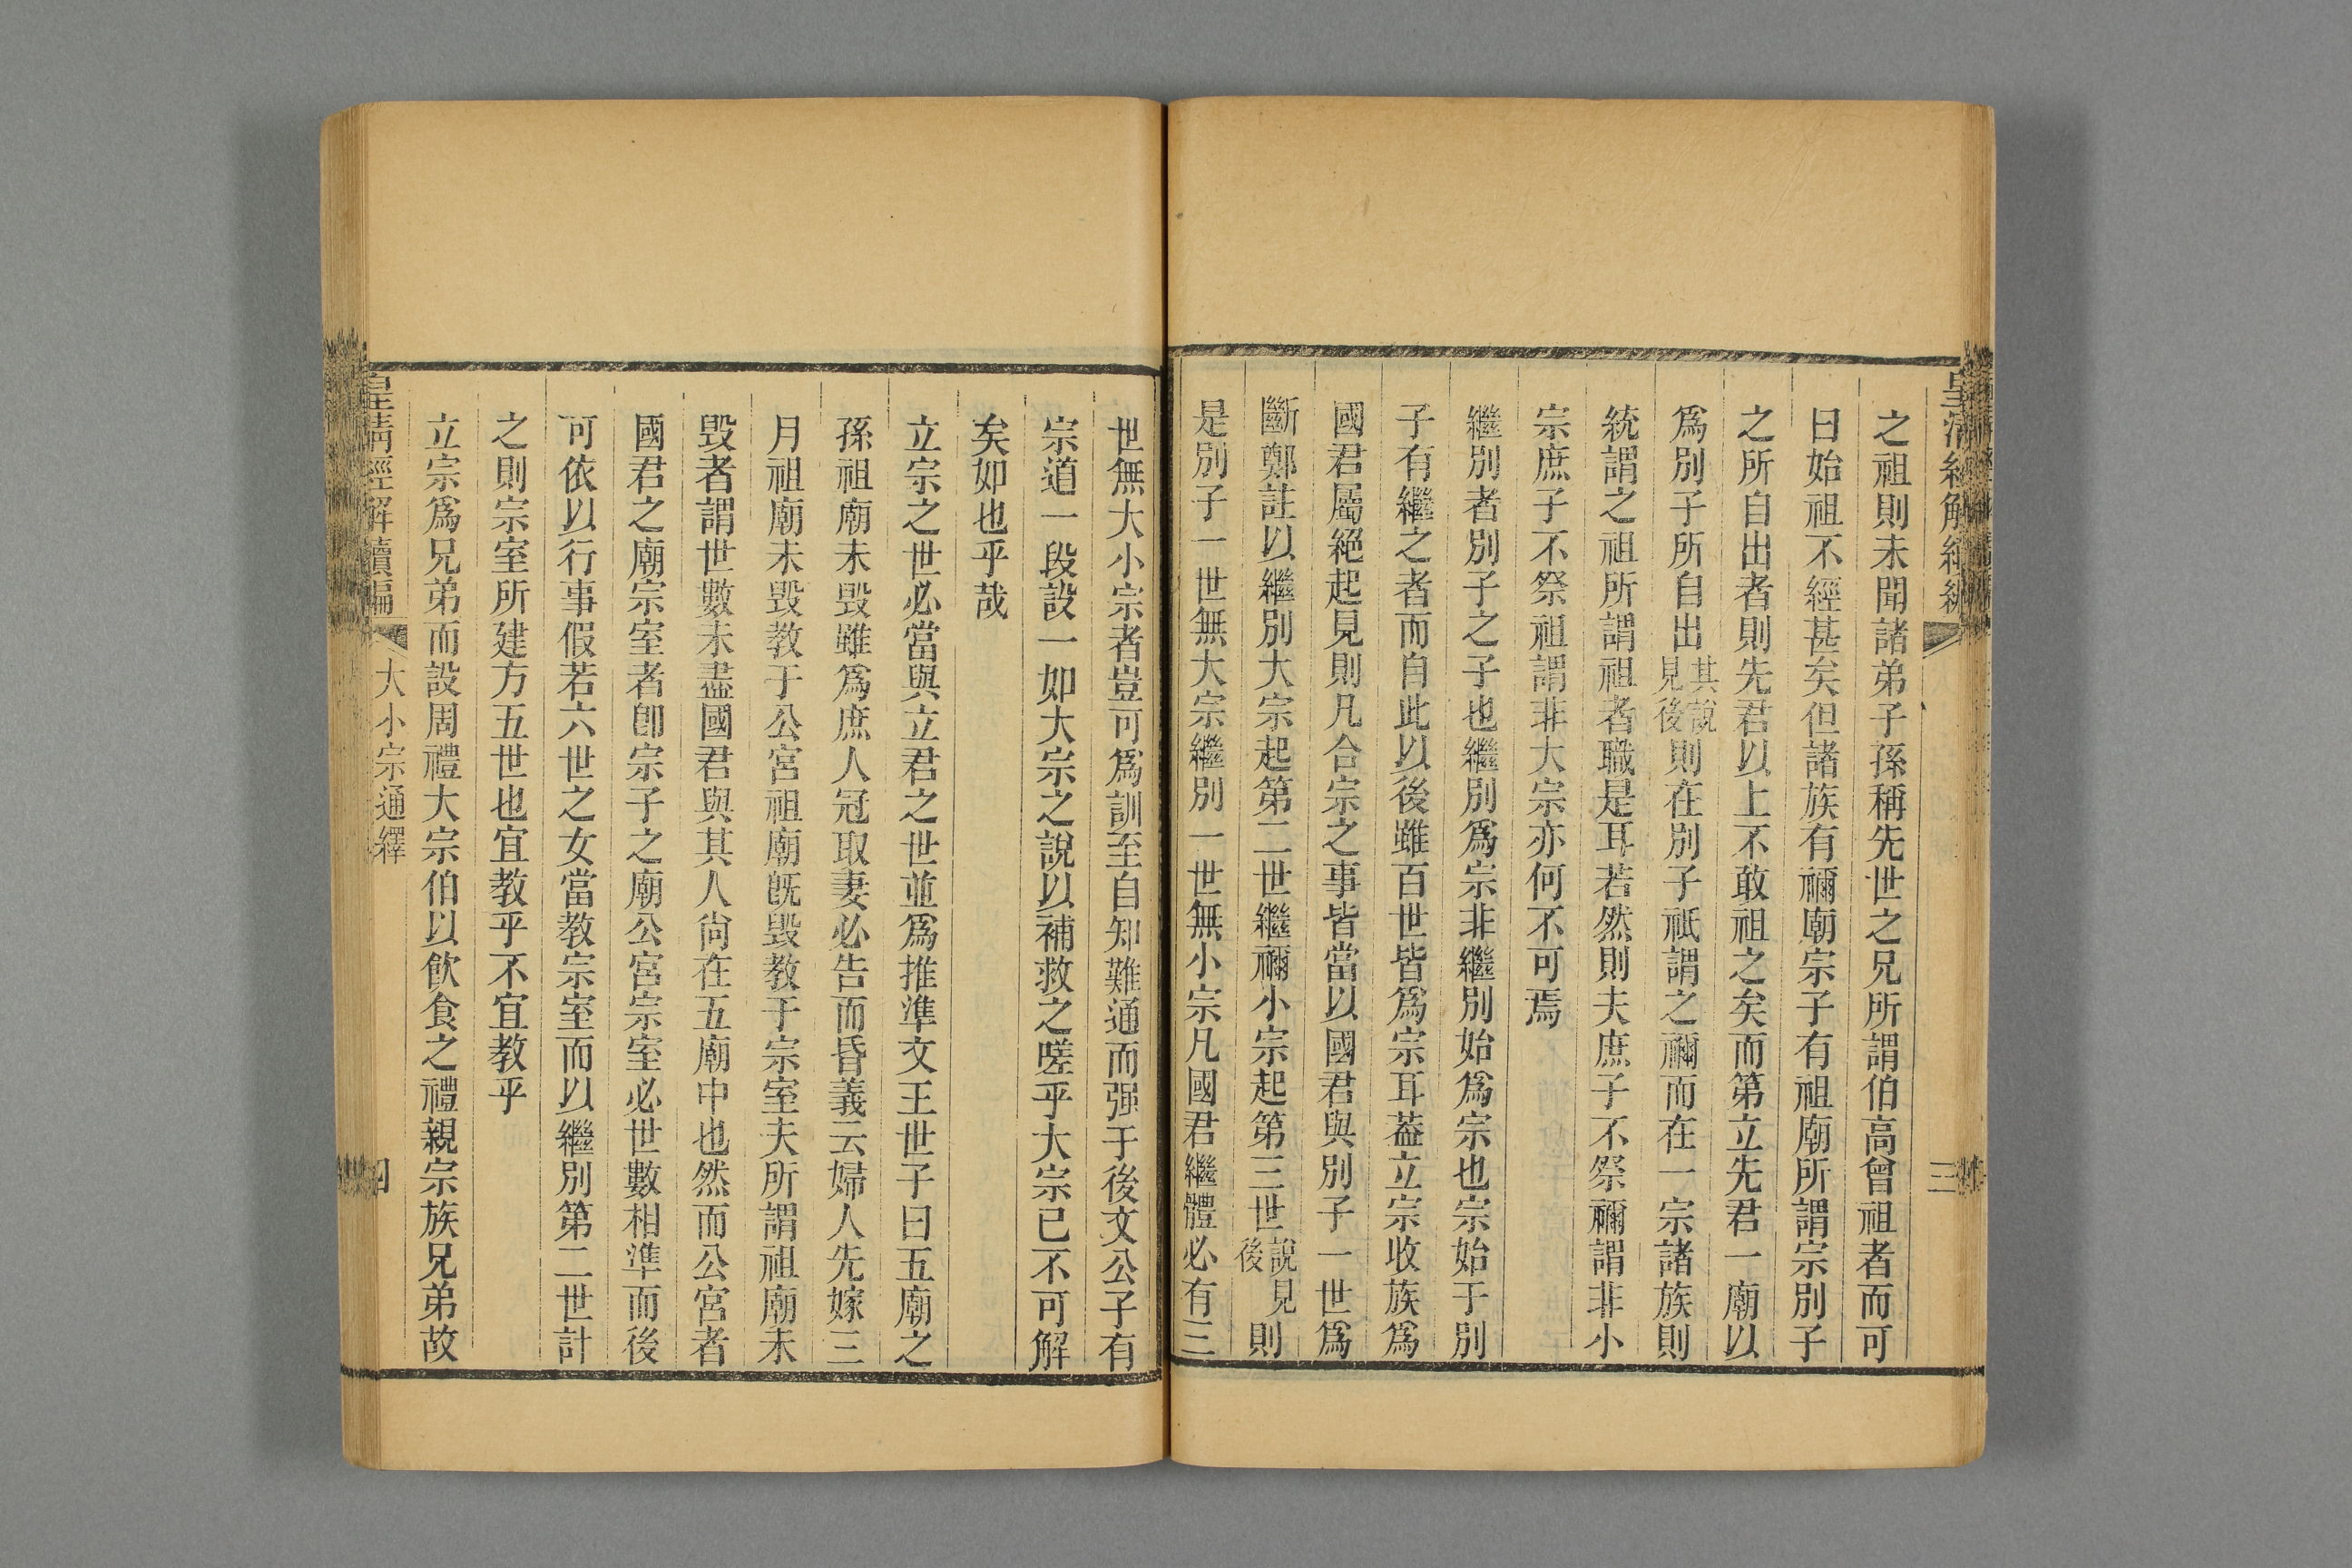 皇清經解續編
三
之祖則未聞諸弟子孫稱先世之兄所謂伯高曾祖者而可
曰始祖不經甚矣但諸族有禰廟宗子有祖廟所謂宗別子
之所自出者則先君以上不敢祖之矣而第立先君一廟以
爲別子所自出其說見後則在別子祇謂之禰而在一宗諸族則
統謂之祖所謂祖者職是耳若然則夫庶子不祭禰謂非小
宗庶子不祭祖謂非大宗亦何不可焉
繼別者別子之子也繼別爲宗非繼別始爲宗也宗始于別
子有繼之者而自此以後雖百世皆爲宗耳葢立宗收族爲
國君屬絕起見則凡合宗之事皆當以國君與別子一世爲
斷鄭註以繼別大宗起第二世繼禰小宗起第三世說見後則
是別子一世無大宗繼別一世無小宗凡國君繼體必有三
世無大小宗者豈可爲訓至自知難通而强于後文公子有
宗道一段設一如大宗之說以補救之嗟乎大宗已不可解
矣如也乎哉
立宗之世必當與立君之世並爲推準文王世子曰五廟之
孫祖廟未毀雖爲庶人冠取妻必告而昏義云婦人先嫁三
月祖廟未毀教于公宮祖廟旣毀教于宗室夫所謂祖廟未
毀者謂世數未盡國君與其人尙在五廟中也然而公宮者
國君之廟宗室者卽宗子之廟公宮宗室必世數相準而後
可依以行事假若六世之女當教宗室而以繼別第二世計
之則宗室所建方五世也宜教乎不宜教乎
立宗爲兄弟而設周禮大宗伯以飮食之禮親宗族兄弟故
皇淸經解續編
大小宗通繹
四